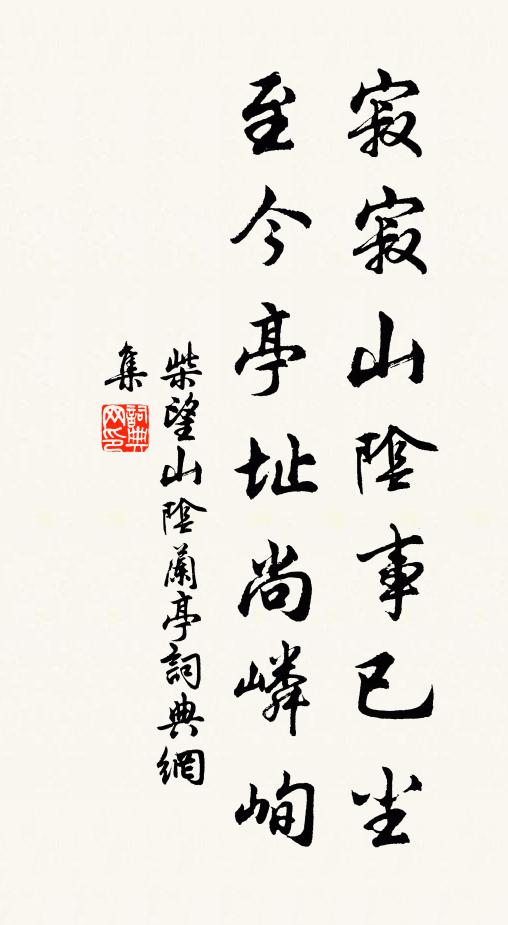 寂寂山陰事已尘
至今亭址尚嶙峋
柴望山陰蘭亭詞典網
集
詞典
网印